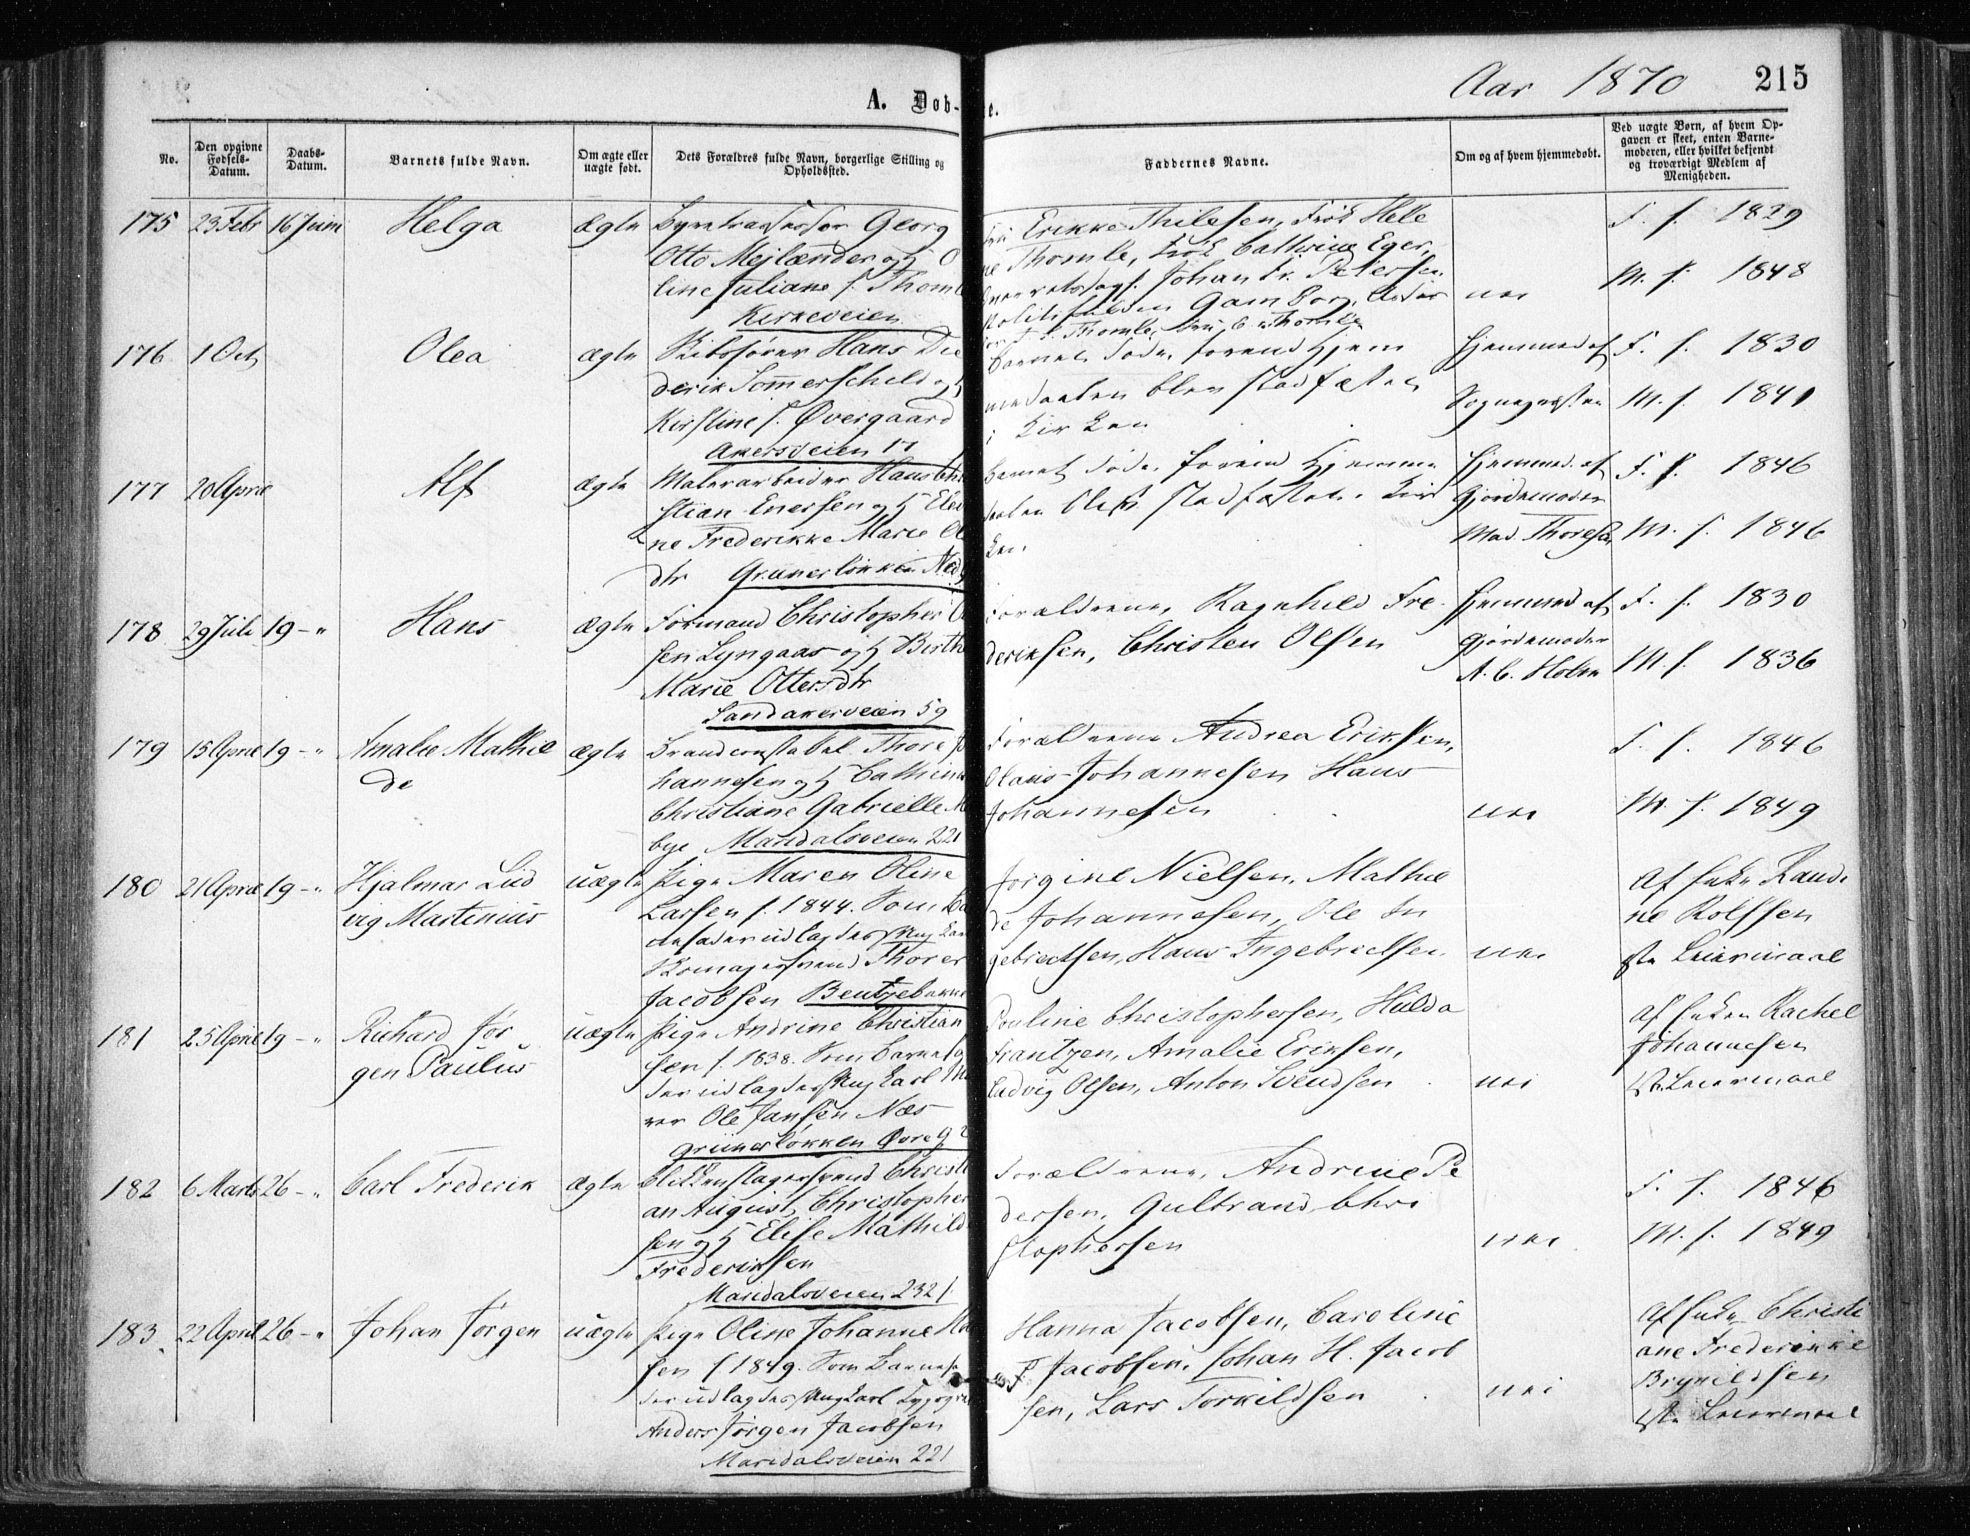 Aar 1870
215
A. Døb-
e.
No.
Den opgivne
Fødsels-
Datum.
Daabs-
Datum.
Barnets fulde Navn.
Om ægte eller
uægte født.
Dets Forældres fulde Navn, borgerlige Stilling og
Opholdssted.
Faddernes Navne.
Om og af hvem hjemmedøbt.
Ved uægte Børn, af hvem Op-
gaven er skeet, enten Barne-
moderen, eller hvilket bekjendt
og troværdigt Medlem af
Menigheden.
175 23 Febr 16 Juni Helga ægte
Georg
Otto Mejlænder og H. O
line Juliane f. Thomle
Kirkeveien
Erikke Thilesen, Frøk Hele
ne Thomle, Frøk Cathrine Eger,
Johan Fr. Petersen
Gamborg,
Thomle, Fru C. Thomle
nei
F. f. 1829
M. f. 1848
176 1 Oct Olea ægte
Skibsfører Hans Die
derik Sommerscheld og H
Kirstine f. Øvergaard
Akersveien 17
Barnet døde forend Hjem
medaaben blev stadfæstet
i Kirken
Hjemmed. af
Sognepresten
F. f. 1830
M. f. 1841
177 20 April Alf ægte
Malerarbeider Hans Chri
stian Enersen og H Ele
ne Frederikke Marie Ol
dtr Grünerløkken Ned
Barnet døde forend Hjemme
daaben blev stadfæstet i Kir
ken.
Hjemmed. af
Gjordemoder
Mad. Thoresen
F. f. 1846
M. f. 1846
178 29 Juli 19 - " Hans ægte
Formand Christopher Ol
sen Lyngaas og H Birthe
Marie Ottersdtr
Sandakerveien 59
Forældrene, Ragnhild Fre
deriksen, Christen Olsen
Hjemmed af
Gjordemoder
A. C. Holm
F. f. 1830
M. f. 1836
179 15 April 19 - " Amalie Mathil
de ægte
Brandconstabel Thore Jo
hannesen og H Cathinka
Christiane Gabrielle M
bye Maridalsveien 221
Forældrene Andrea Eriksen,
Olaus Johannesen Hans
Johannesen
nei
F. f. 1846
M. f. 1849
180 21 April 19 - " Hjalmar Lud
vig Martinius uægte
Pige Maren Oline
Larsen f. 1844. Som Ba
nefader udlagdes Ung Karl
Skomagersvend Thorer
Jacobsen Bentzebakken
Jorgine Nielsen, Mathil
de Johannesen, Ole In
gebretsen, Hans Ingebrietsen
nei
Af Enke Randi
ne Rolfsen
1ste Leiermaal
181 25 April 19 - " Richard Jør
gen Paulus uægte
Pige Andrine Christian
sen f. 1838. Som Barnefa
der udlagdes Ung Karl Mu
rer Ole Jansen Næs
Grünerløkken Øvre g
Pouline Christophersen, Hulda
Frantzen, Amalie Eriksen,
Ludvig Olsen, Anton Svendsen
nei
Af Enken Rachel
Johannesen
1ste Leiermaal
182 6 Marts 26 - " Carl Frederik ægte
Blikkenslagersvend Christi
an August Christopher
sen og H Elise Mathilde
Frederiksen
Maridalsveien 232
Forældrene, Andrine Pe
dersen, Gulbrand Chri
stophersen
nei
F. f. 1846
M. f. 1849
183 22 April 26 - " Johan Jørgen uægte
Pige Oline Johanne
sen f 1849. Som Barnefa
der udlagdes Ung Karl Typogra
Anders Jørgen Jacobsen
Maridalsveien 221
Hanna Jacobsen, Caroline
F. Jacobsen, Johan H. Jacob
sen, Lars Torkildsen
nei
Af Enke Christi
ane Frederikke
Brynildsen
1ste Leiermaal